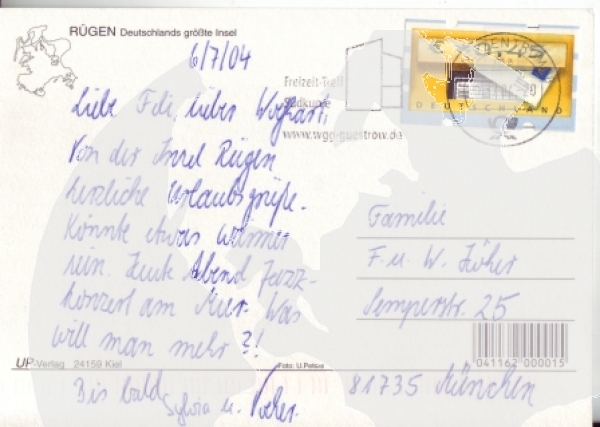 RÜGEN Deutschlands größte Insel
6/7/04
Freizeit-Treff
Südkurve
www.wgg-guestrow.de
DEUTSCHLAND
Liebe lieber
Von der Insel Rügen
herzliche Urlaubsgrüße.
Könnte etwas wärmer
sein. Heute Abend Jazz-
konzert am Meer. Was
will man mehr ?!
Bis bald
Sylvia u. Volker.
Familie
F. u. W.
Semperstr. 25
81735 München
041162 000015
UP-Verlag 24159 Kiel
Foto: U. Petsiw